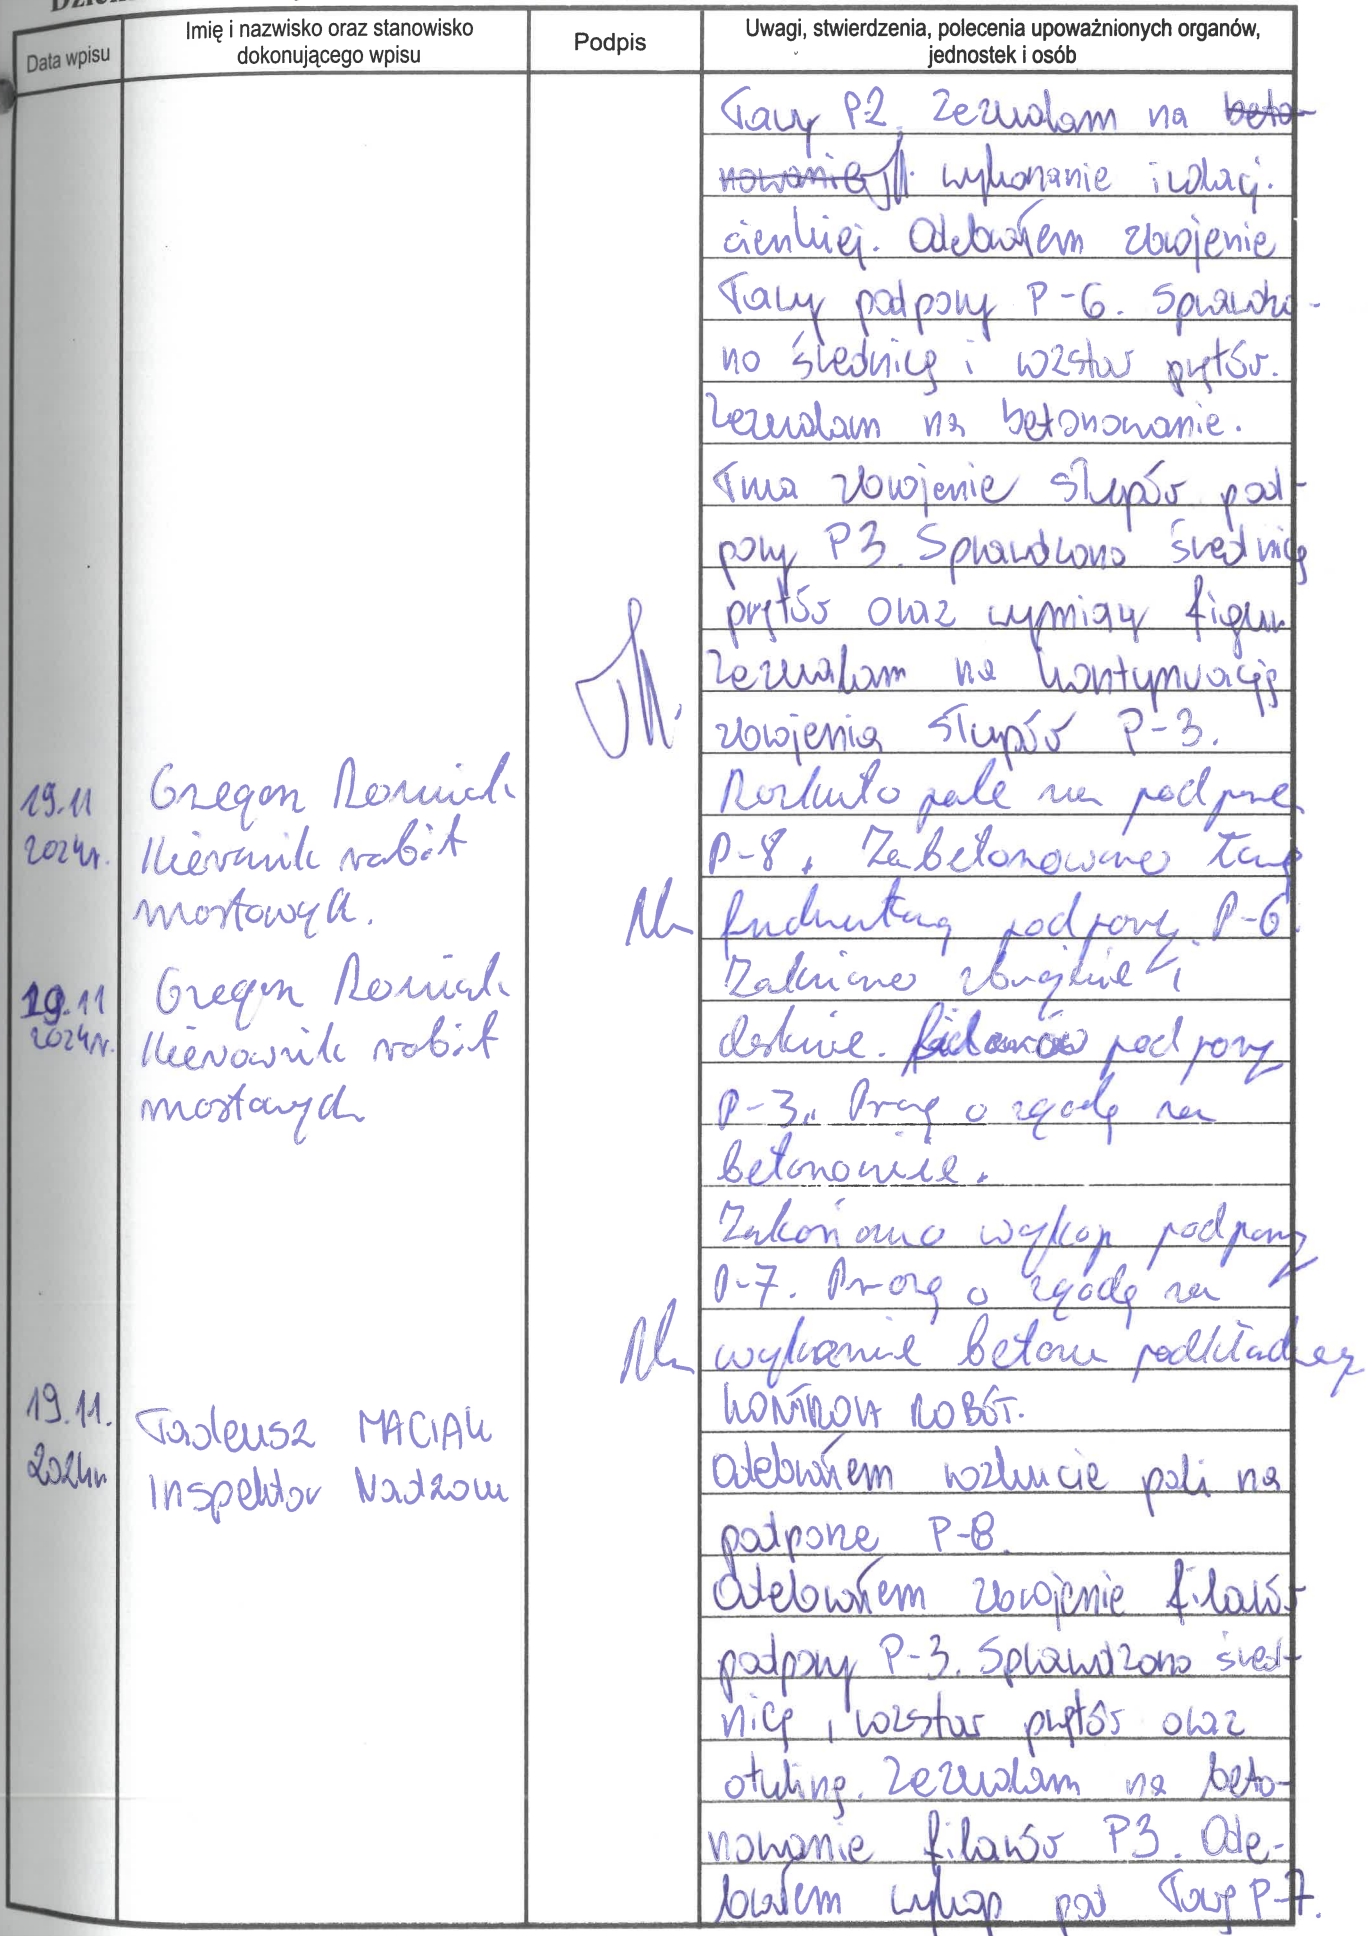 Data wpisu
Imię i nazwisko oraz stanowisko
dokonującego wpisu
Podpis
Uwagi, stwierdzenia, polecenia upoważnionych organów,
jednostek i osób
ławy P2. Zezwalam na beto-
nowanie wykonanie izolacji
cienkiej. Odebrałem zbrojenie
ławy podpory P-6. Sprawdzo-
no średnicę i rozstaw prętów.
Zezwalam na betonowanie.
Trwa zbrojenie słupów pod-
pory P3. Sprawdzono średnicę
prętów oraz wymiary figur
Zezwalam na kontynuację
zbrojenia słupów P-3.
19.11
2024r.
Grzegorz
Kierownik robót
mostowych.
Rozkuto pale na podporze
P-8. Zabetonowano ławę
fundamentową podpory P-6.
19.11
2024r.
Grzegorz
Kierownik robót
mostowych
Zakończono zbrojenie i
deskowanie filarów podpory
P-3. Proszę o zgodę na
betonowanie.
Zakończono wykop podpory
P-7. Proszę o zgodę na
wykonanie betonu podkładowego
19.11.
2024r
Tadeusz MACIAK
Inspektor Nadzoru
KONTROLA ROBÓT.
Odebrałem rozkucie pali na
podporze P-8.
Odebrałem zbrojenie filarów
podpory P-3. Sprawdzono śred-
nicę i rozstaw prętów oraz
otulinę. Zezwalam na beto-
nowanie filarów P3. Ode-
brałem wykop pod ławę P-7.